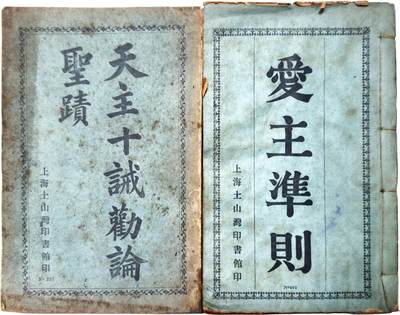 天主十誡勸論
聖蹟
上海土山灣印書館印
愛主準則
上海土山灣印書館印